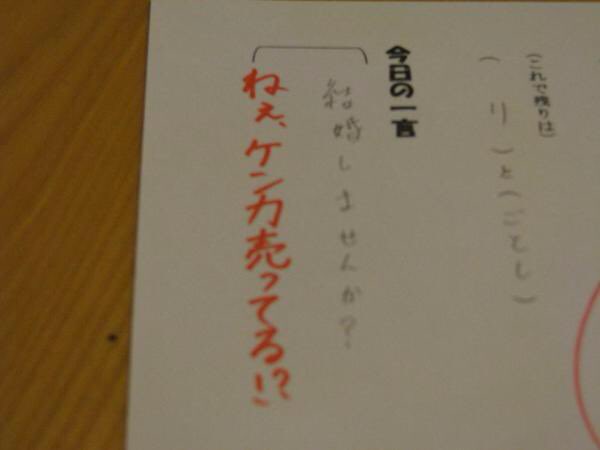 (これで残りは)
( り )と(ごとし)
今日の一言
結婚しませんか?
ねぇ、ケンカ売ってる!?